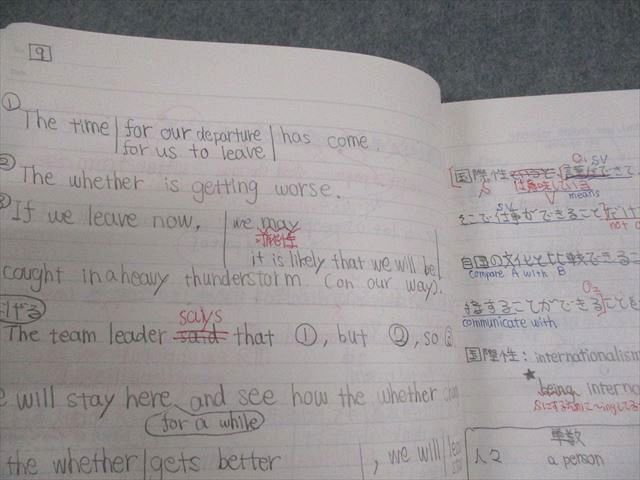 9
① The time | for our departure | has come.
for us to leave
② The whether is getting worse.
③ If we leave now, we may
可能性
it is likely that we will be
caught in a heavy thunderstorm. (on our way).
says
The team leader said that ①, but ②, so ③
will stay here and see how the whether
for a while
the whether | gets better | , we will
国際性
O₁ SV
を意味している
means
そこで仕事ができること
SV
not o
自国の文化と比較できるこ
compare A with B
O₂
接することができる]ことも
communicate with
国際性: internationalism
★ being interna
単数
人々 a person